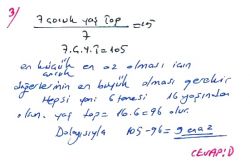 3/
7 çocuk yaş top = 15
7
7.Ç.Y.T = 105
en küçük en az olması için
çocuk
değerlerinin en büyük olması gerekir
Hepsi yani 6 tanesi 16 yaşından
olur. yaş top = 16.6 = 96 olur.
Dolayısıyla 105-96 = 9 en az
CEVAP: D